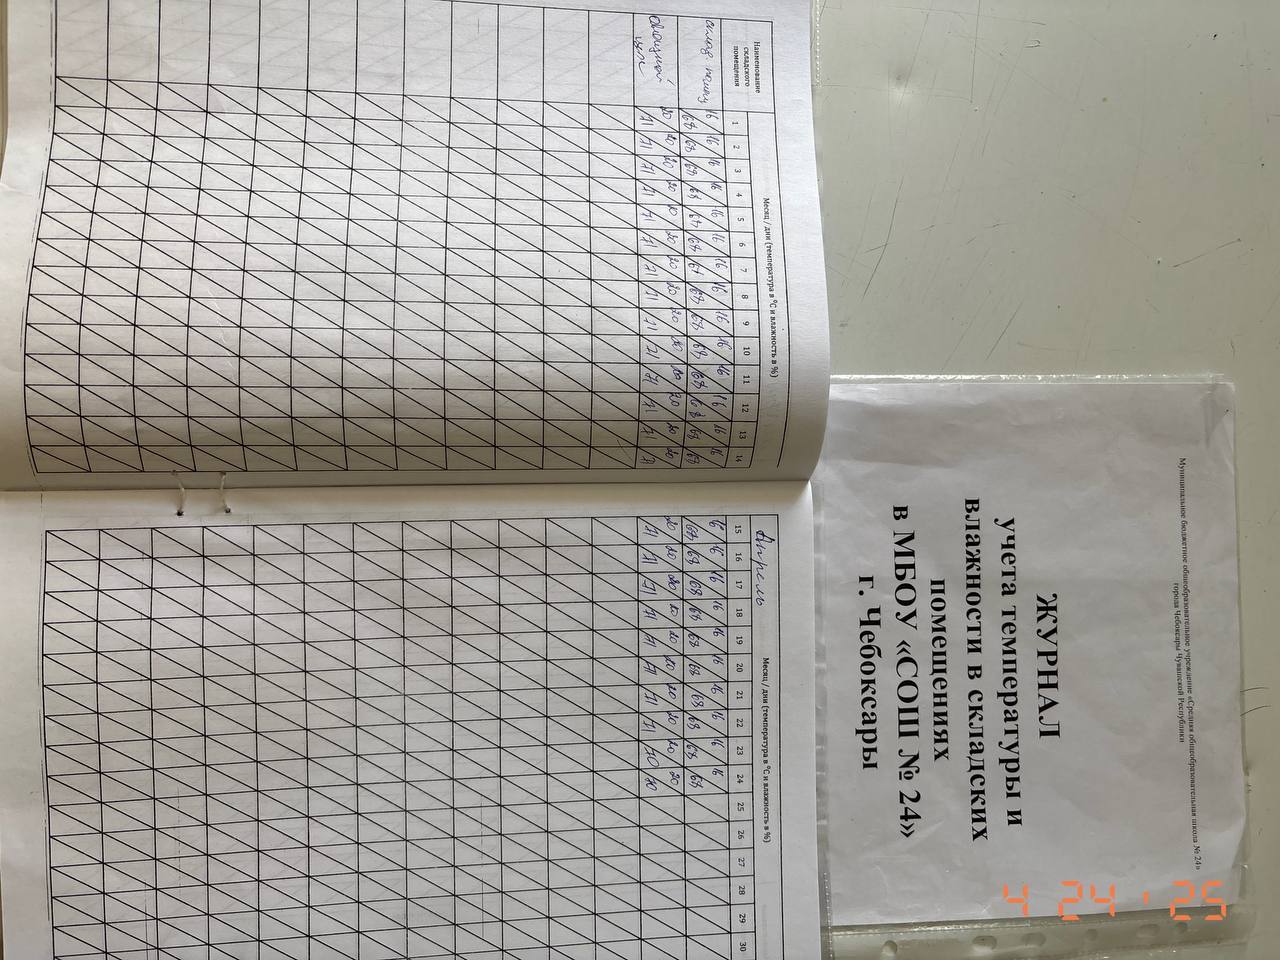 Муниципальное бюджетное общеобразовательное учреждение «Средняя общеобразовательная школа № 24»
города Чебоксары Чувашской Республики
ЖУРНАЛ
учета температуры и
влажности в складских
помещениях
в МБОУ «СОШ № 24»
г. Чебоксары
Наименование
складского
помещения
Месяц / дни (температура в °С и влажность в %)
1 2 3 4 5 6 7 8 9 10 11 12 13 14
склад
16 16 16 16 16 16 16 16 16 16 16 16 16 16
68 68 68 68 68 68 68 68 68 68 68 68
овощной
цех
20 20 20 20 20 20 20 20 20 20 20 20 20
71 71 71 71 71 71 71 71 71 71 71 71 71 71
Апрель
Месяц / дни (температура в °С и влажность в %)
15 16 17 18 19 20 21 22 23 24 25 26 27 28 29 30
16 16 16 16 16 16 16 16 16 16
68 68 68 68 68 68 68 68 68 68
20 20 20 20 20 20 20 20 20 20
71 71 71 71 71 71 71 71 70 70
4 24 '25